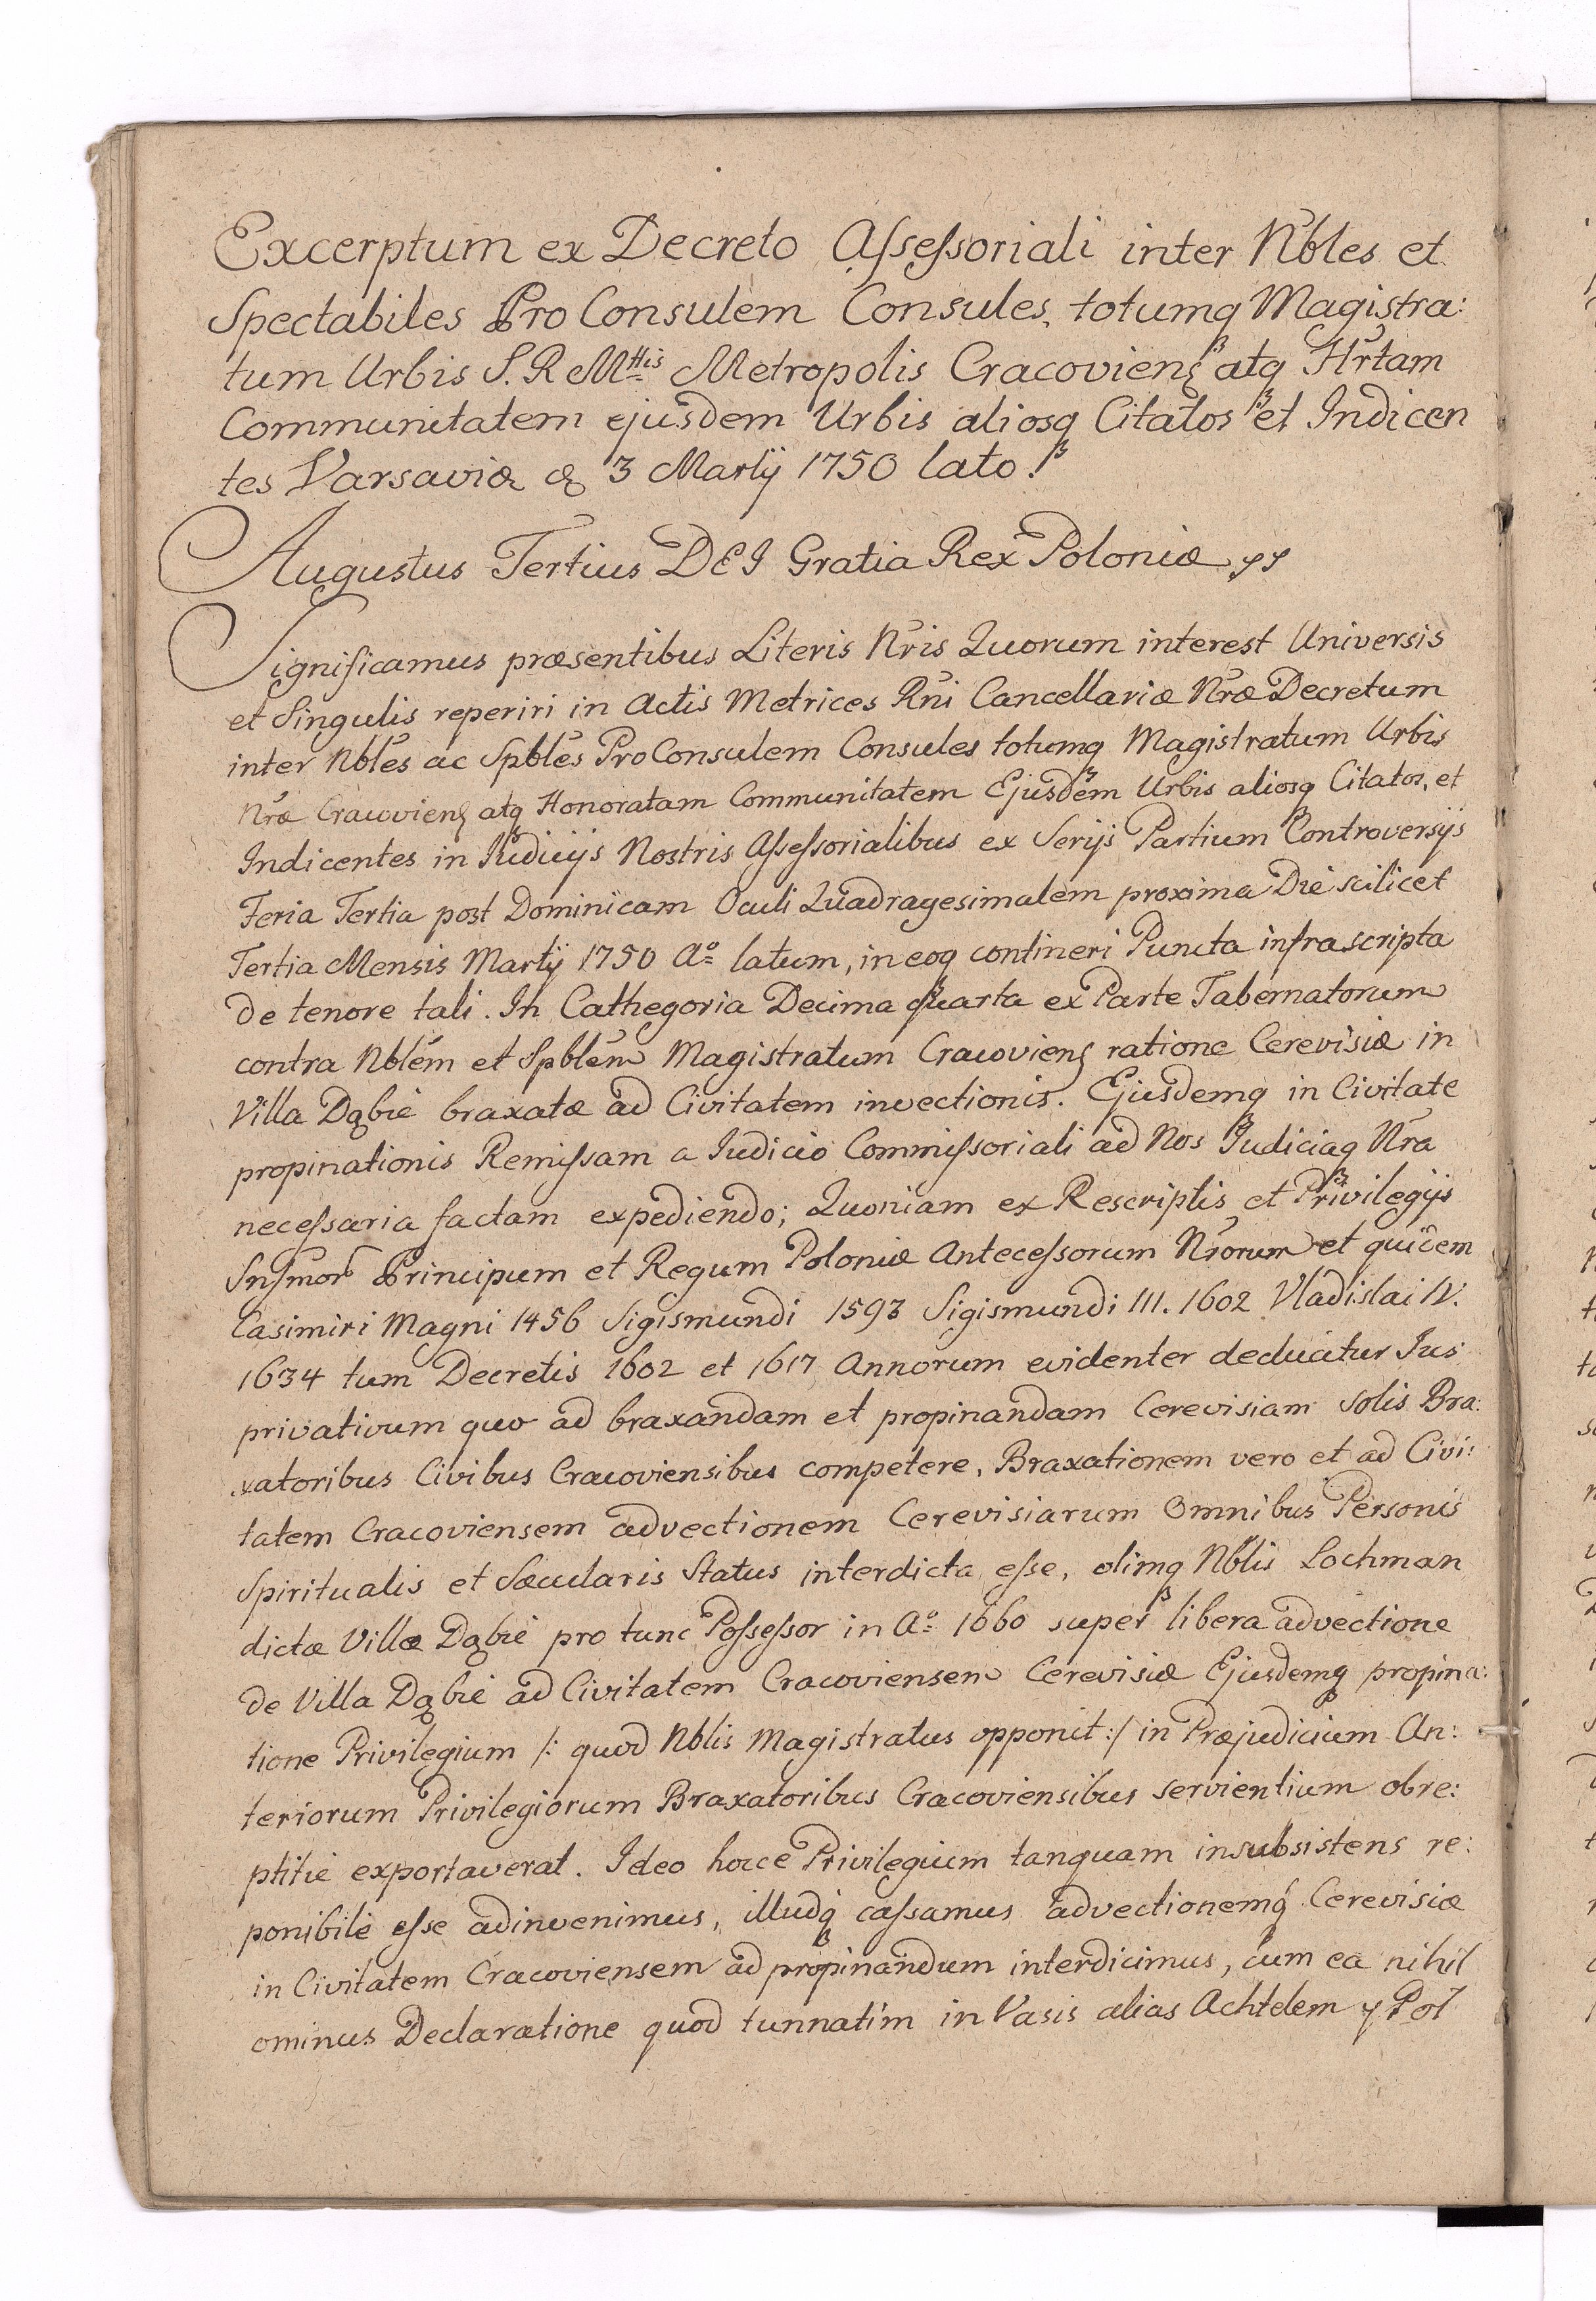 Excerptum ex Decreto Aſseſsoriali inter Nbles et
Spectabiles Pro Consulem Consules, totumq Magistra:
tum Urbis S. R. Mttis Metropolis Cracovienſ atq Hrtam
Communitatem ejusdem Urbis aliosq Citatos et Indicen
tes Varsaviæ 3 Martij 1750 lato.
Augustus Tertius DEI Gratia Rex Poloniæ
Significamus præsentibus Literis Nris Quorum interest Universis
et Singulis reperiri in Actis Metrices Rni Cancellariæ Nræ Decretum
inter Nbles ac Spbles ProConsulem Consules totumq Magistratum Urbis
Nræ Cracovienſ atq Honoratam Communitatem Ejusdem Urbis aliosq Citatos, et
Indicentes in Judicijs Nostris Aſseſsorialibus ex Serijs Partium Controversijs
Feria Tertia post Dominicam Oculi Quadragesimalem proxima Die scilicet
Tertia Mensis Martij 1750 Ao latum, in eoq contineri Puncta infrascripta
de tenore tali. In Cathegoria Decima quarta ex Parte Tabernatorum
contra Nblem et Spblem Magistratum Cracovienſ ratione Cerevisiæ in
Villa Dąbie braxatæ ad Civitatem invectionis. Ejusdemq in Civitate
propinationis Remiſsam a Iudicio Commiſsoriali ad Nos Iudiciaq Nra
neceſsaria factam expediendo; Quoniam ex Rescriptis et Privilegijs
Principum et Regum Poloniæ Anteceſsorum Nrorum et quidem
Casimiri Magni 1456 Sigismundi 1593 Sigismundi III. 1602 Vladislai IV.
1634 tum Decretis 1602 et 1617 Annorum evidenter deducitur Ius
privativum quo ad braxandam et propinandam Cerevisiam solis Bra:
xatoribus Civibus Cracoviensibus competere, Braxationem vero et ad Civi:
tatem Cracoviensem advectionem Cerevisiarum Omnibus Personis
Spiritualis et Sæcularis Status interdicta eſse, olimq Nblis Lochman
dictæ Villæ Dąbie pro tunc Poſseſsor in Ao 1660 super libera advectione
de Villa Dąbie ad Civitatem Cracoviensem Cerevisiæ Ejusdemq propina:
tione Privilegium /: quod Nblis Magistratus opponit :/ in Præjudicium An:
teriorum Privilegiorum Braxatoribus Cracoviensibus servientium obre:
ptitie exportaverat. Ideo hocce Privilegium tanquam insubsistens re:
ponibile eſse adinvenimus, illudq caſsamus advectionemq Cerevisiæ
in Civitatem Cracoviensem ad propinandum interdicimus, cum ea nihil
ominus Declaratione quod tunnatim in Vasis alias Achtelem y Poł